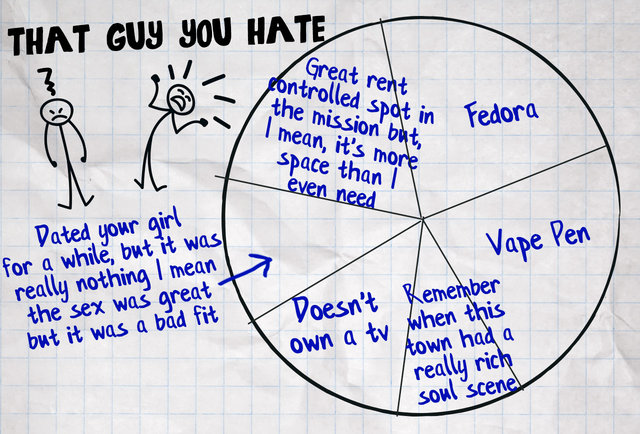 THAT GUY YOU HATE
Great rent
controlled spot in
the mission but,
I mean, it's more
space than I
even need
Fedora
Vape Pen
Remember
when this
town had a
really rich
soul scene
Doesn't
own a tv
Dated your girl
for a while, but it was
really nothing I mean
the sex was great
but it was a bad fit